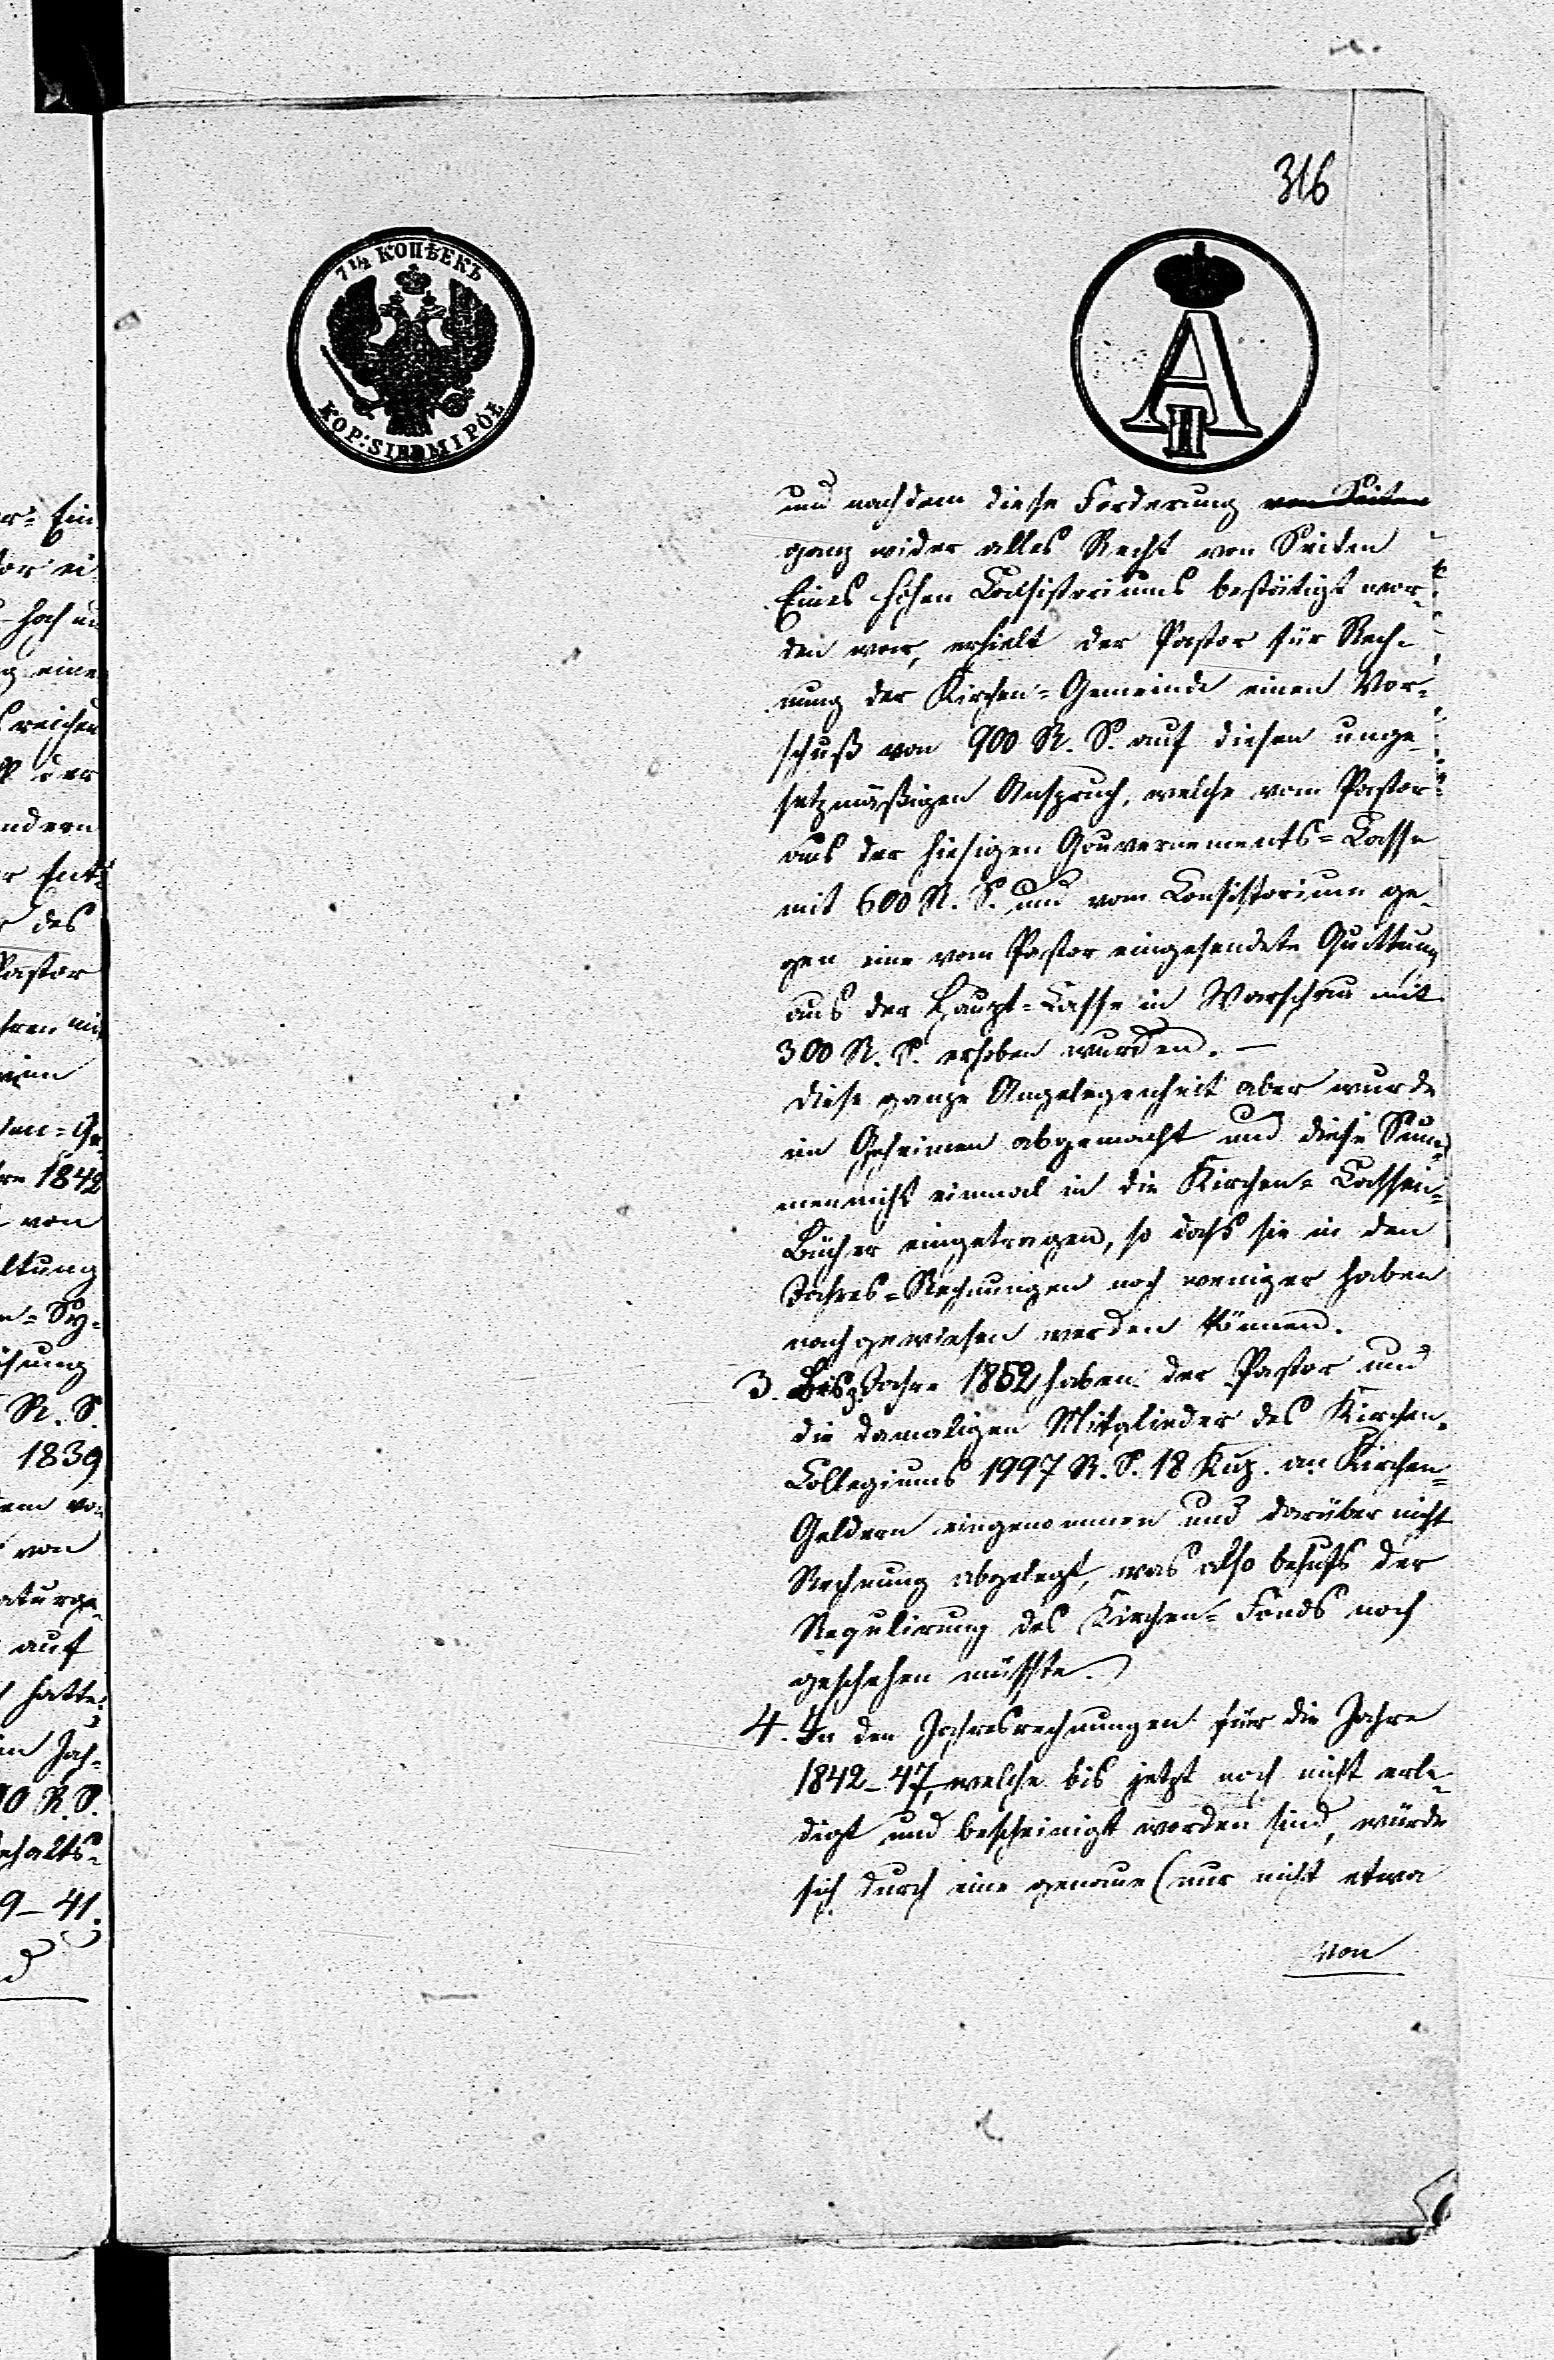 316
7 1/2 КОПѢЕКЪ
KOP: SIEDM I PÓŁ
A II
und nachdem diese Forderung von Seiten
ganz wider alles Recht von Seiten
Eines hohen Consistoriums bestätigt wor-
den war, erhielt der Pastor für Rech-
nung der Kirchen=Gemeinde einen Vor-
schuß von 900 R. S. auf diesen unge-
setzmäßigen Anspruch, welche vom Pastor
aus der hiesigen Gouvernements=Casse
mit 600 R. S. und vom Consistorium ge-
gen eine vom Pastor eingesendete Quittung
aus der Haupt=Casse in Warschau mit
300 R. S. erhoben wurden. —
Diese ganze Angelegenheit aber wurde
im Geheimen abgemacht und diese Sum-
men nicht einmal in die Kirchen=Cassen=
Bücher eingetragen, so dass sie in den
Jahres=Rechnungen noch weniger haben
nachgewiesen werden können.
3. Bis z. Jahre 1852 haben der Pastor und
die damaligen Mitglieder des Kirchen-
Collegiums 1997 R. S. 18 Kop. an Kirchen=
Geldern eingenommen und darüber nicht
Rechnung abgelegt, was also behufs der
Regulirung des Kirchen=Fonds noch
geschehen müsste.
4. In den Jahresrechnungen für die Jahre
1842–47, welche bis jetzt noch nicht erle-
digt und bescheinigt worden sind, würde
sich durch eine genaue (nur nicht etwa
von
r= Ein
or ei
hoch
g eine
reichen
der
ndern
r Ent=
des
Pastor
hren mi
=Ge
re 1842
von
ltung
sung
R. S.
1839
dem vo-
von
aturge-
auf
hatte
in Jah-
0 R. S.
ehalts-
9–41.
d